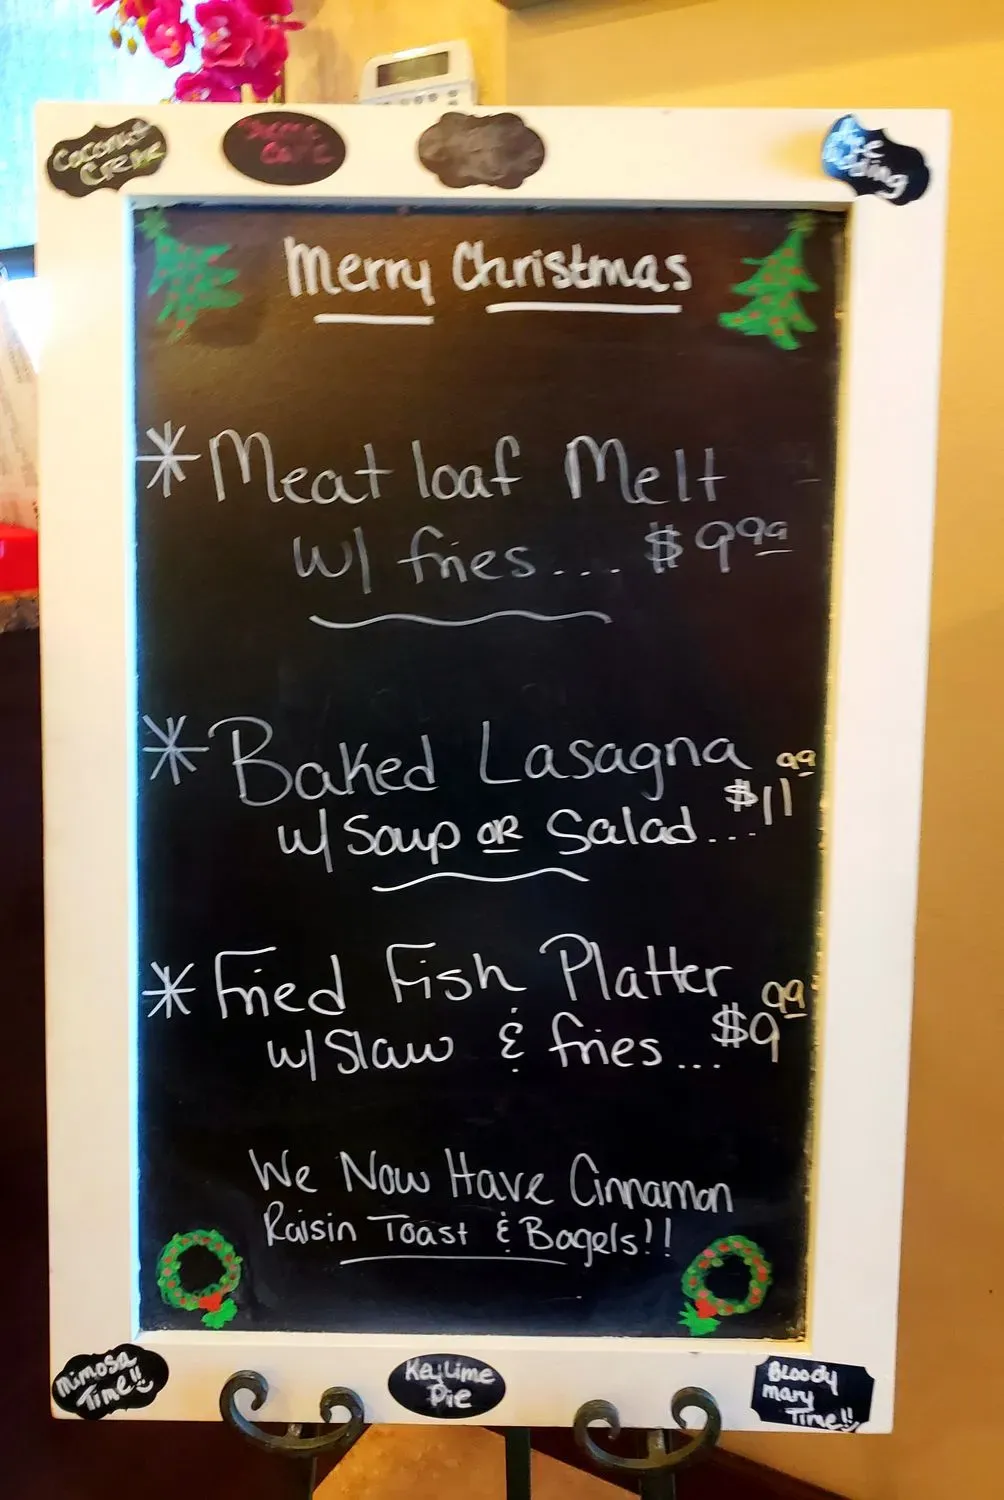 Coconut
Creme
Cake
Merry Christmas
* Meatloaf Melt
w/ fries.... $9.99
* Baked Lasagna
w/ Soup OR Salad... $11.99
* Fried Fish Platter
w/ Slaw & fries... $9.99
We Now Have Cinnamon
Raisin Toast & Bagels!!
Mimosa
Time!!
Key Lime
Pie
Bloody
Mary
Time!!